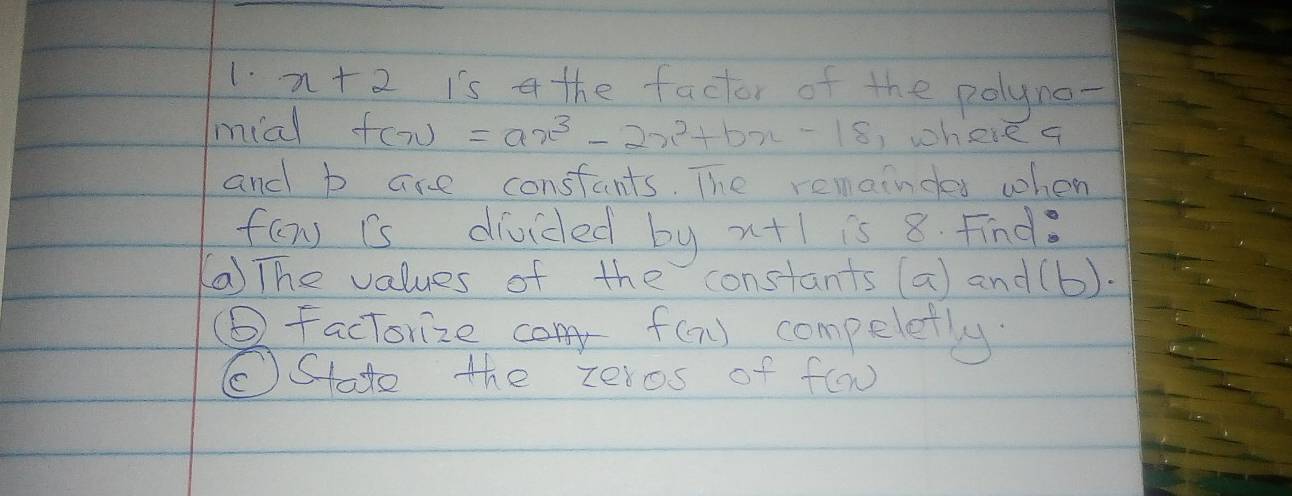 1. x + 2 is the factor of the polyno-
mial f(x) = ax³ - 2x² + bx - 18, where a
and b are constants. The remainder when
f(x) is divided by x+1 is 8. Find:
(a) The values of the constants (a) and (b).
(b) Factorize f(x) compeletly.
(c) State the zeros of f(x)